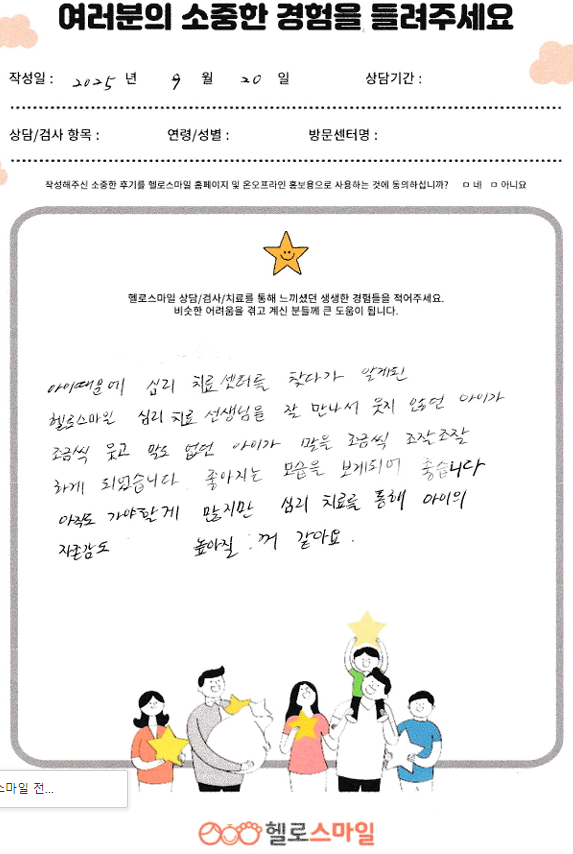 여러분의 소중한 경험을 들려주세요
작성일 : 2025 년 9 월 20 일 상담기간 :
상담/검사 항목 : 연령/성별 : 방문센터명 :
작성해주신 소중한 후기를 헬로스마일 홈페이지 및 온오프라인 홍보용으로 사용하는 것에 동의하십니까? ㅁ 네 ㅁ 아니요
헬로스마일 상담/검사/치료를 통해 느끼셨던 생생한 경험들을 적어주세요.
비슷한 어려움을 겪고 계신 분들께 큰 도움이 됩니다.
아이때문에 심리 치료센터를 찾다가 알게된
헬로스마일 심리치료 선생님을 잘 만나서 웃지 않던 아이가
조금씩 웃고 말도 없던 아이가 말을 조금씩 조잘조잘
하게 되었습니다. 좋아지는 모습을 보게되어 좋습니다
아직도 가야할게 많지만 심리 치료를 통해 아이의
자존감도 높아질 꺼 같아요.
스마일 전...
헬로스마일